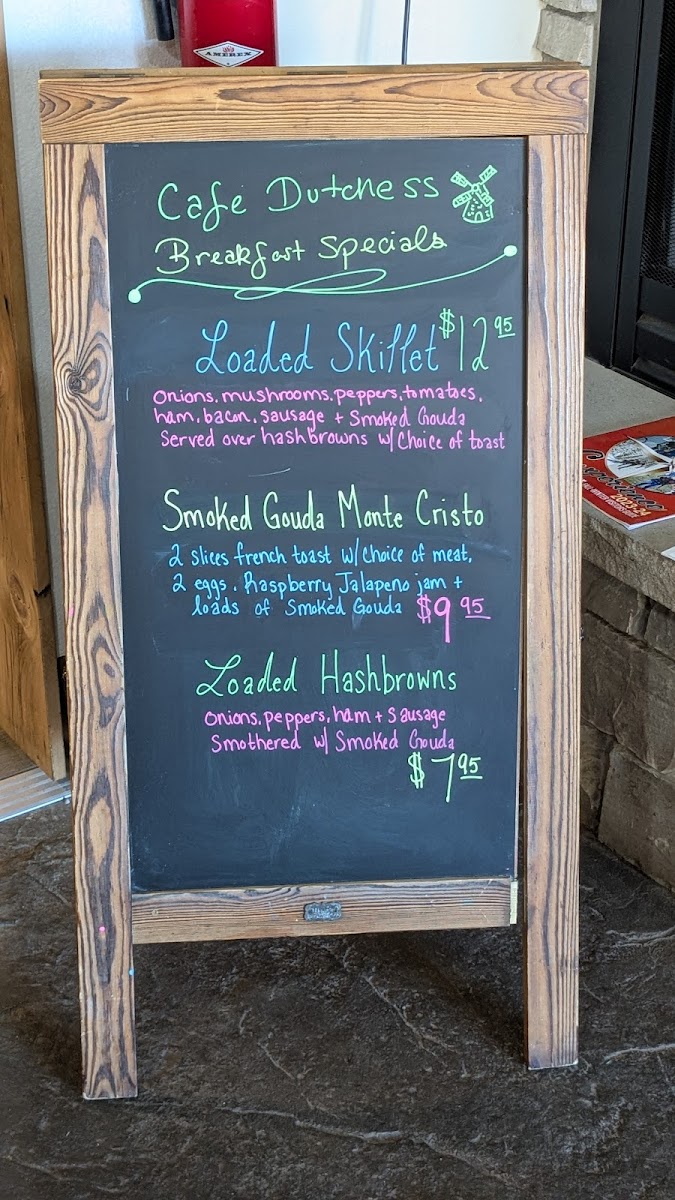 AMEREX
Cafe Dutchess
Breakfast Specials
Loaded Skillet $12.95
onions, mushrooms, peppers, tomatoes,
ham, bacon, sausage + Smoked Gouda
Served over hashbrowns w/ Choice of toast
Smoked Gouda Monte Cristo
2 slices french toast w/ choice of meat,
2 eggs. Raspberry Jalapeno jam +
loads of Smoked Gouda $9.95
Loaded Hashbrowns
onions, peppers, ham + sausage
Smothered w/ Smoked Gouda
$7.95
2023-24